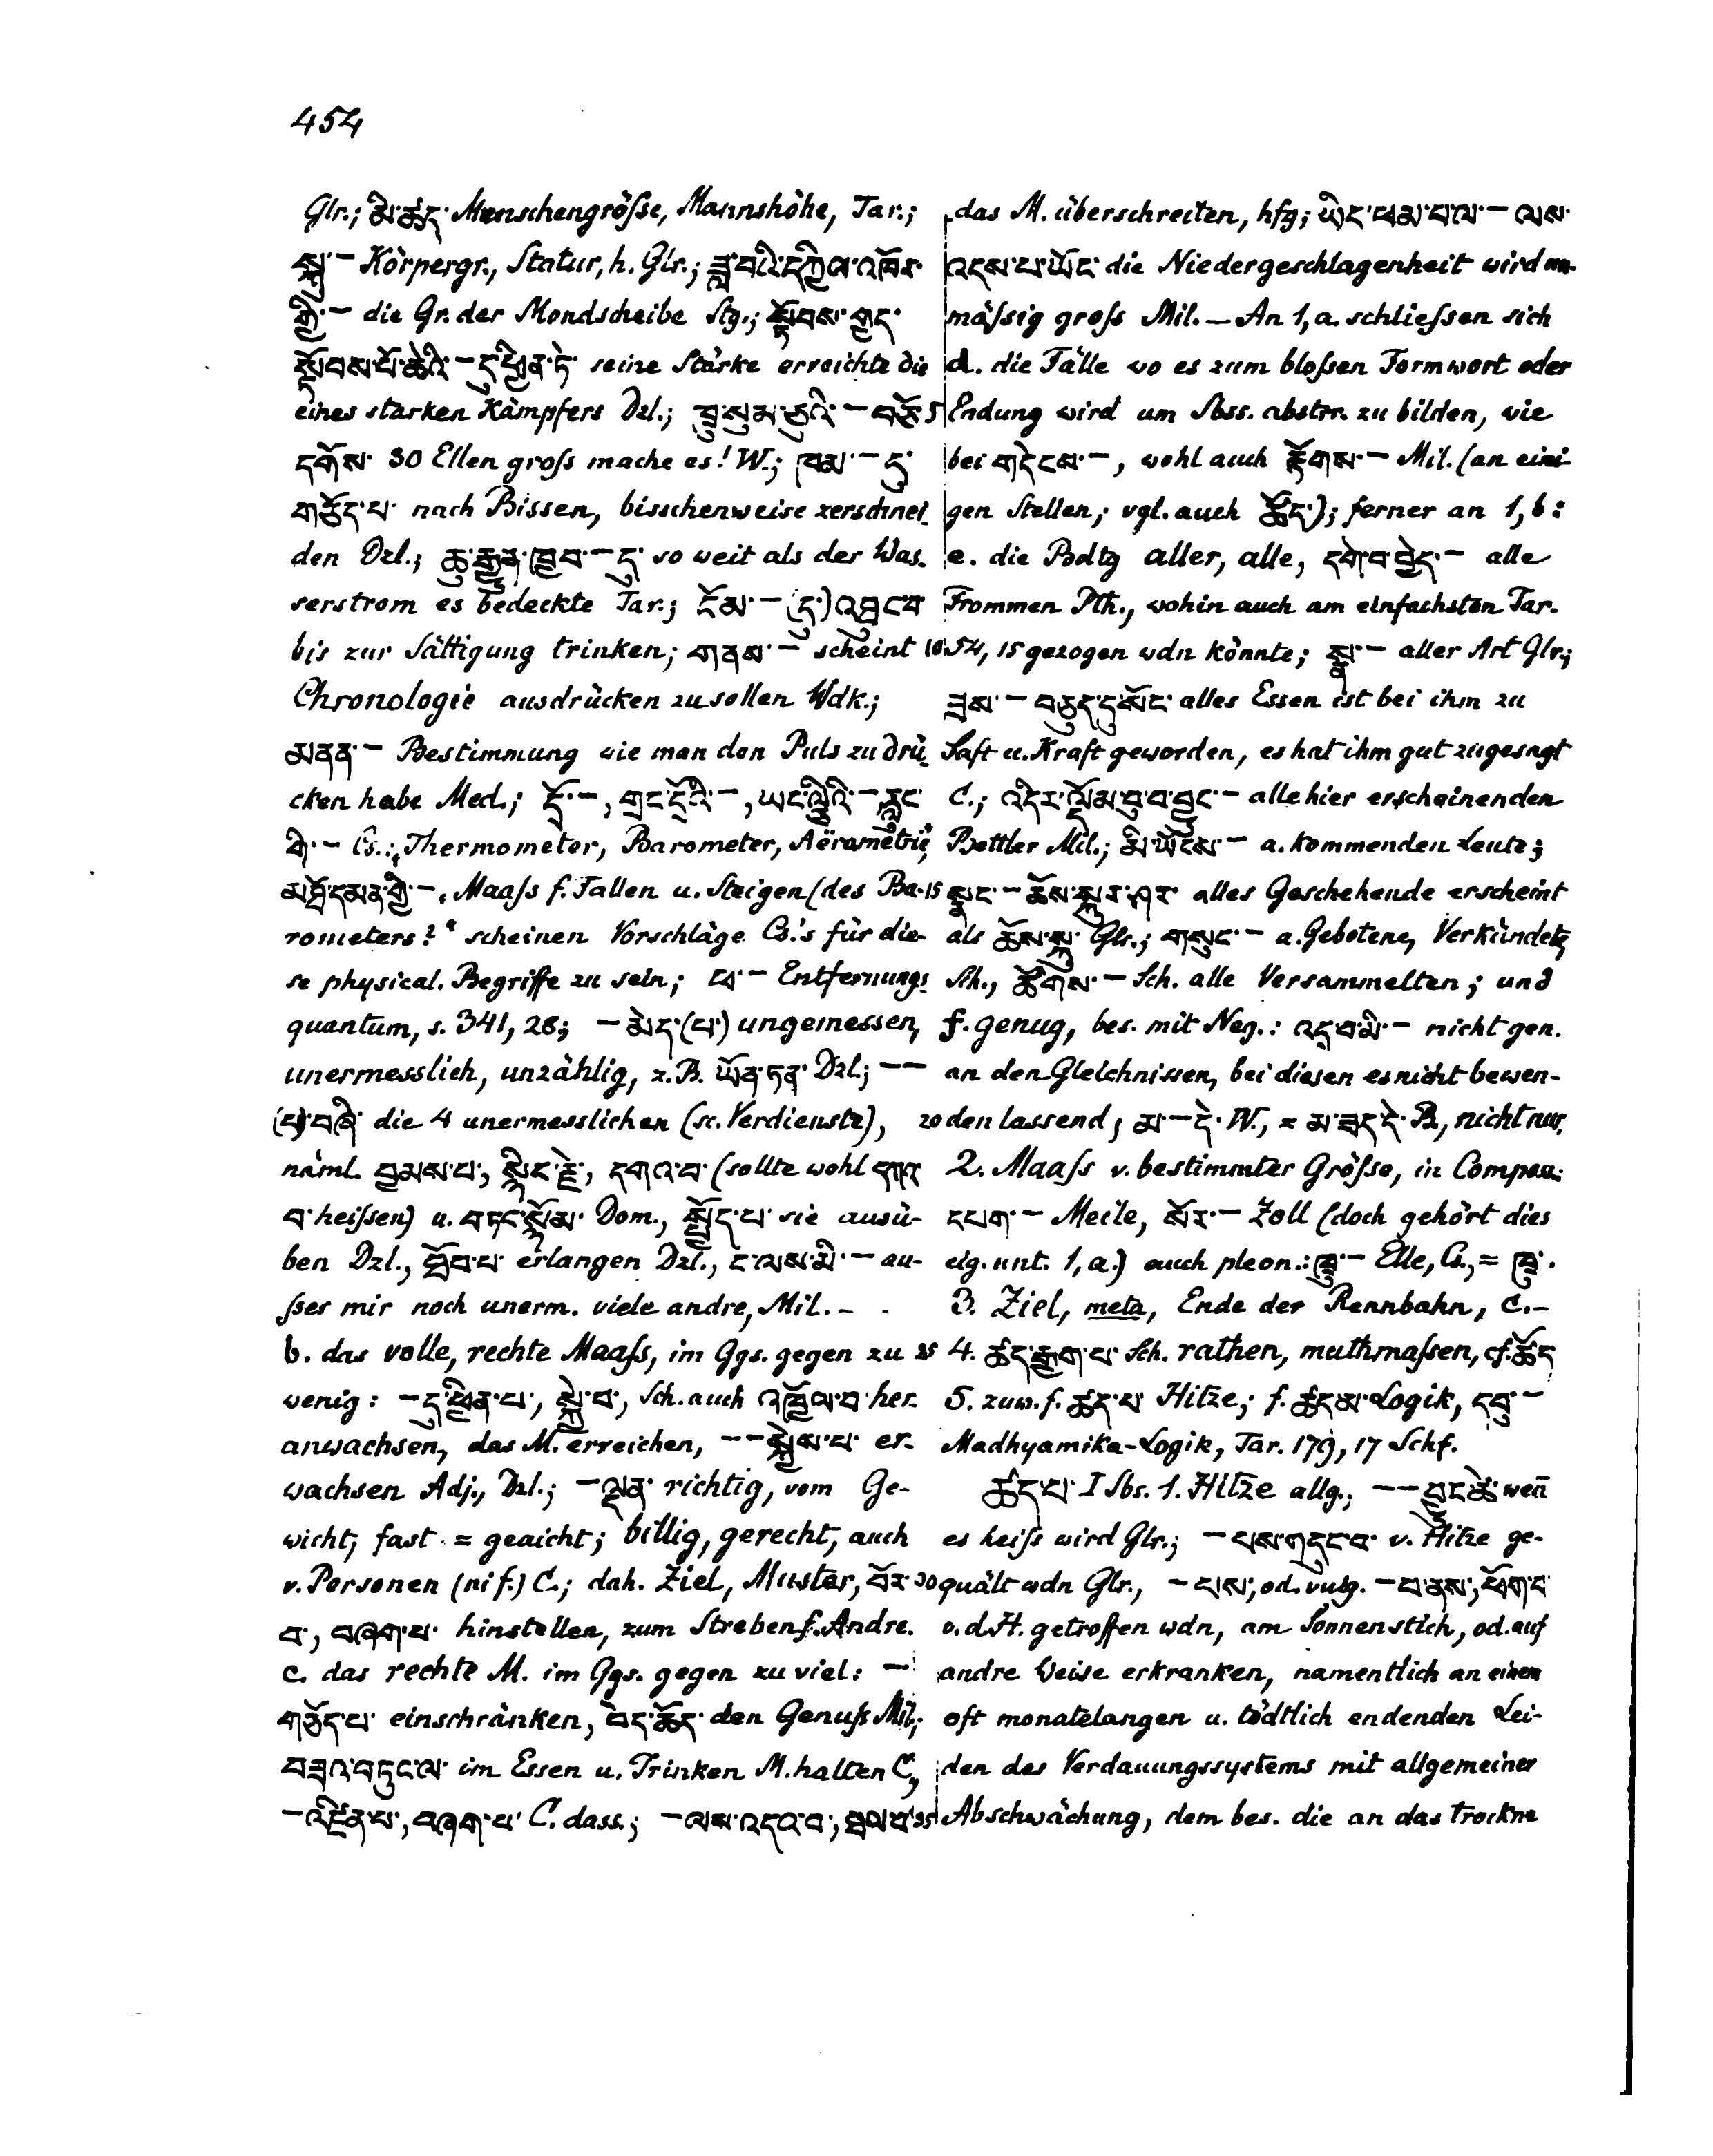 454
Glr.; མི་ཚད་ Menschengröſse, Mannshöhe, Tar.;
སྐུ་ — Körpergr., Statur, h. Glr.; ཟླ་བའི་དཀྱིལ་འཁོར་
གྱི་ — die Gr. der Mondscheibe Stg.; སྟོབས་གྱད་
སྟོབས་པོ་ཆེའི་ — དུ་ཕྱིན་ཏེ་ seine Stärke erreichte die
eines starken Kämpfers Dzl.; ཁྲུ་སུམ་ཅུའི་ — བཟོ་ 5
དགོས་ 30 Ellen gross mache es! W.; ཁམ་ — དུ་
གཅོད་པ་ nach Bissen, bisschenweise zerschnei-
den Dzl.; ཆུ་རྒྱུན་ཁྱབ་ — དུ་ so weit als der Was-
serstrom es bedeckte Tar.; ངོམ་ — (དུ་) འཐུང་བ་
bis zur Sättigung trinken; གནས་ — scheint 10
Chronologie auszudrücken zu sollen Wdk.;
མནན་ — Bestimmung wie man den Puls zu drü-
cken habe Med.; དྲོ་ —, གྲང་དྲོའི་ —, ཡང་ལྕིའི་ —, རླུང་
གི་ — Cs.: „Thermometer, Barometer, Aërometrie,
མཐོ་དམན་གྱི་ —, Maaſs f. Fallen u. Steigen (des Ba- 15
rometers?“ scheinen Vorschläge Cs.'s für die-
se physical. Begriffe zu sein; ཕ་ — Entfernungs-
quantum, s. 341, 28; — མེད་(པ་) ungemessen,
unermesslich, unzählig, z. B. ཡོན་ཏན་ Dzl.; — —
(པ་)་བཞི་ die 4 unermesslichen (sc. Verdienste), 20
näml. བྱམས་པ་, སྙིང་རྗེ་, དགའ་བ་ (sollte wohl དགའ་
བ་ heiſsen) u. བཏང་སྙོམ་ Dom., སྤྱོད་པ་ sie ausü-
ben Dzl., ཐོབ་པ་ erlangen Dzl., ང་ལས་མི་ — au-
ſser mir noch unerm. viele andre, Mil. —
b. das volle, rechte Maaſs, im Ggs. gegen zu 25
wenig: — དུ་ཕྱིན་པ་, སྐྱེ་བ་, Sch. auch འཁྱོལ་བ་ her-
anwachsen, das M. erreichen, — — སྐྱེས་པ་ er-
wachsen Adj., Dzl.; — ལྡན་ richtig, vom Ge-
wicht, fast = geaicht; billig, gerecht, auch
v. Personen (ni f.) C.; dah. Ziel, Muster, བོར་ 30
བ་, བཞག་པ་ hinstellen, zum Streben f. Andre.
c. das rechte M. im Ggs. gegen zu viel: —
གཅོད་པ་ einschränken, བེད་ཚོད་ den Genuſs Mil.;
བཟའ་བཏུང་ལ་ im Essen u. Trinken M. halten C.,
— འཛིན་པ་, བཞག་པ་ C. dass.; — ལས་འདའ་བ་, ཐལ་བ་ 35
das M. überschreiten, hfg; ཡིད་ཕམ་པ་ལ་ — ལས་
འདས་པ་ཡོང་ die Niedergeschlagenheit wird un-
mäſsig groſs Mil. — An 1, a. schlieſsen sich
d. die Fälle wo es zum bloſsen Formwort oder
Endung wird um Sbss. abstr. zu bilden, wie
bei གདེངས་ —, wohl auch རྟོགས་ — Mil. (an eini-
gen Stellen; vgl. auch ཚོད་); ferner an 1, b:
e. die Bdtg aller, alle, དགེ་བ་བྱེད་ — alle
Frommen Pth., wohin auch am einfachsten Tar.
54, 15 gezogen wdn könnte; སྣ་ — aller Art Glr.;
ཟས་ — བཅུད་དུ་སོང་ alles Essen ist bei ihm zu
Saft u. Kraft geworden, es hat ihm gut zugesagt
C.; འདིར་ལྡོམ་བུ་བ་བྱུང་ — alle hier erscheinenden
Bettler Mil.; མི་ཡོངས་ — a. kommenden Leute;
སྣང་ — ཆོས་སྐུར་ཤར་ alles Geschehende erscheint
als ཆོས་སྐུ་ Glr.; གསུང་ — a. Gebotene, Verkündete
Sch., ཚོགས་ — Sch. alle Versammelten; und
f. genug, bes. mit Neg.: འདྲ་བ་མི་ — nicht gen.
an den Gleichnissen, bei diesen es nicht bewen-
den lassend; མ་ — དེ་ W., = མ་ཟད་དེ་ B., nicht nur.
2. Maaſs v. bestimmter Gröſse, in Compos.:
དཔག་ — Meile, སོར་ — Zoll (doch gehört dies
eig. unt. 1, a.) auch pleon.: ཁྲུ་ — Elle, Cs., = ཁྲུ་.
3. Ziel, meta, Ende der Rennbahn, C. —
4. ཚད་རྒྱག་པ་ Sch. rathen, muthmaſsen, cf. ཚོད་
5. zuw. f. ཚད་པ་ Hitze; f. ཚད་མ་ Logik, དབུ་ —
Madhyamika-Logik, Tar. 179, 17 Schf.
ཚད་པ་ I Sbs. 1. Hitze allg.; — — བྱུང་ཚེ་ wen̄
es heiſs wird Glr.; — པས་གདུང་བ་ v. Hitze ge-
quält wdn Glr., — པས་, od. vulg. — པ་ནས་, ཕོག་པ་
v. d. H. getroffen wdn, am Sonnenstich, od. auf
andre Weise erkranken, namentlich an einem
oft monatelangen u. tödtlich endenden Lei-
den des Verdauungssystems mit allgemeiner
Abschwächung, dem bes. die an das trockne